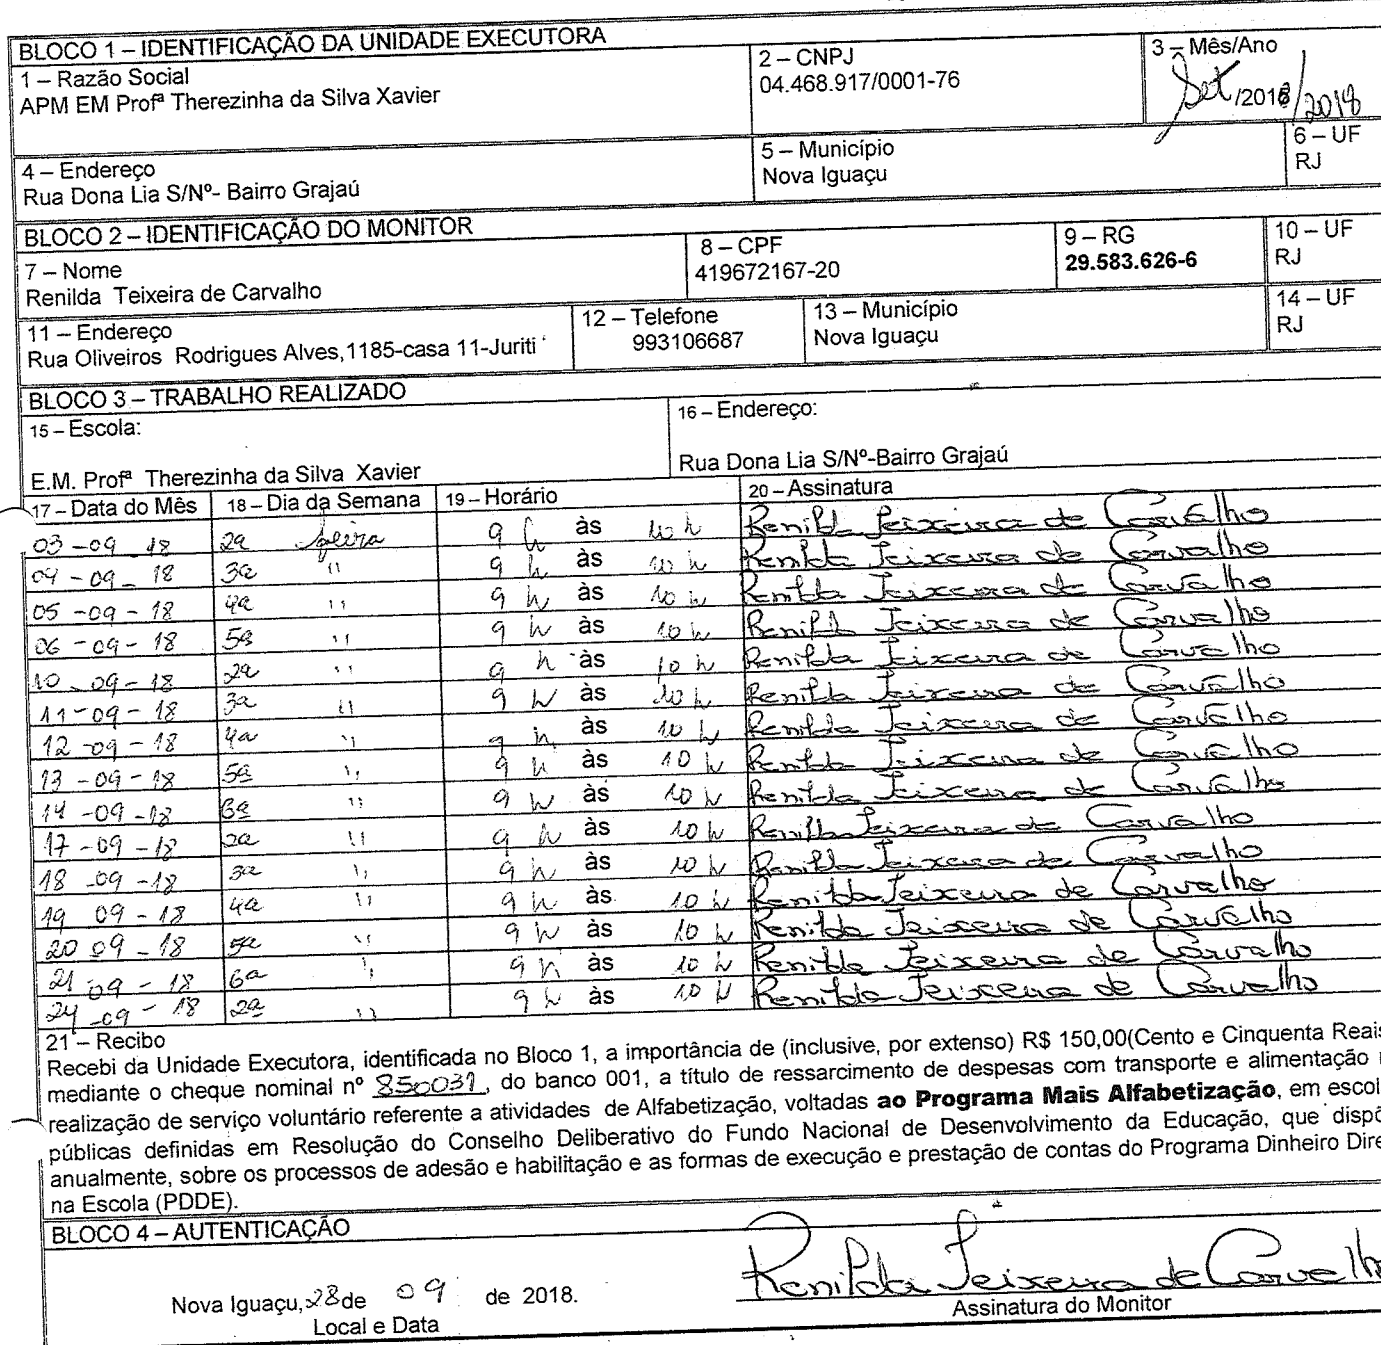 BLOCO 1 – IDENTIFICAÇÃO DA UNIDADE EXECUTORA
1 – Razão Social
APM EM Profª Therezinha da Silva Xavier
2 – CNPJ
04.468.917/0001-76
3 – Mês/Ano
Set /2018/2018
4 – Endereço
Rua Dona Lia S/Nº- Bairro Grajaú
5 – Município
Nova Iguaçu
6 – UF
RJ
BLOCO 2 – IDENTIFICAÇÃO DO MONITOR
7 – Nome
Renilda Teixeira de Carvalho
8 – CPF
419672167-20
9 – RG
29.583.626-6
10 – UF
RJ
11 – Endereço
Rua Oliveiros Rodrigues Alves,1185-casa 11-Juriti
12 – Telefone
993106687
13 – Município
Nova Iguaçu
14 – UF
RJ
BLOCO 3 – TRABALHO REALIZADO
15 – Escola:
E.M. Profª Therezinha da Silva Xavier
16 – Endereço:
Rua Dona Lia S/Nº-Bairro Grajaú
17 – Data do Mês 18 – Dia da Semana 19 – Horário 20 – Assinatura
03-09-18 2ª feira 9 h às 10 h Renilda Teixeira de Carvalho
04-09-18 3ª " 9 h às 10 h Renilda Teixeira de Carvalho
05-09-18 4ª " 9 h às 10 h Renilda Teixeira de Carvalho
06-09-18 5ª " 9 h às 10 h Renilda Teixeira de Carvalho
10-09-18 2ª " 9 h às 10 h Renilda Teixeira de Carvalho
11-09-18 3ª " 9 h às 10 h Renilda Teixeira de Carvalho
12-09-18 4ª " 9 h às 10 h Renilda Teixeira de Carvalho
13-09-18 5ª " 9 h às 10 h Renilda Teixeira de Carvalho
14-09-18 6ª " 9 h às 10 h Renilda Teixeira de Carvalho
17-09-18 2ª " 9 h às 10 h Renilda Teixeira de Carvalho
18-09-18 3ª " 9 h às 10 h Renilda Teixeira de Carvalho
19 09-18 4ª " 9 h às 10 h Renilda Teixeira de Carvalho
20 09-18 5ª " 9 h às 10 h Renilda Teixeira de Carvalho
21-09-18 6ª " 9 h às 10 h Renilda Teixeira de Carvalho
24-09-18 2ª " 9 h às 10 h Renilda Teixeira de Carvalho
21 – Recibo
Recebi da Unidade Executora, identificada no Bloco 1, a importância de (inclusive, por extenso) R$ 150,00(Cento e Cinquenta Reais
mediante o cheque nominal nº 850031, do banco 001, a título de ressarcimento de despesas com transporte e alimentação
realização de serviço voluntário referente a atividades de Alfabetização, voltadas ao Programa Mais Alfabetização, em escol
públicas definidas em Resolução do Conselho Deliberativo do Fundo Nacional de Desenvolvimento da Educação, que dispõ
anualmente, sobre os processos de adesão e habilitação e as formas de execução e prestação de contas do Programa Dinheiro Dire
na Escola (PDDE).
BLOCO 4 – AUTENTICAÇÃO
Renilda Teixeira de Carvalho
Nova Iguaçu, 28 de 09 de 2018.
Assinatura do Monitor
Local e Data